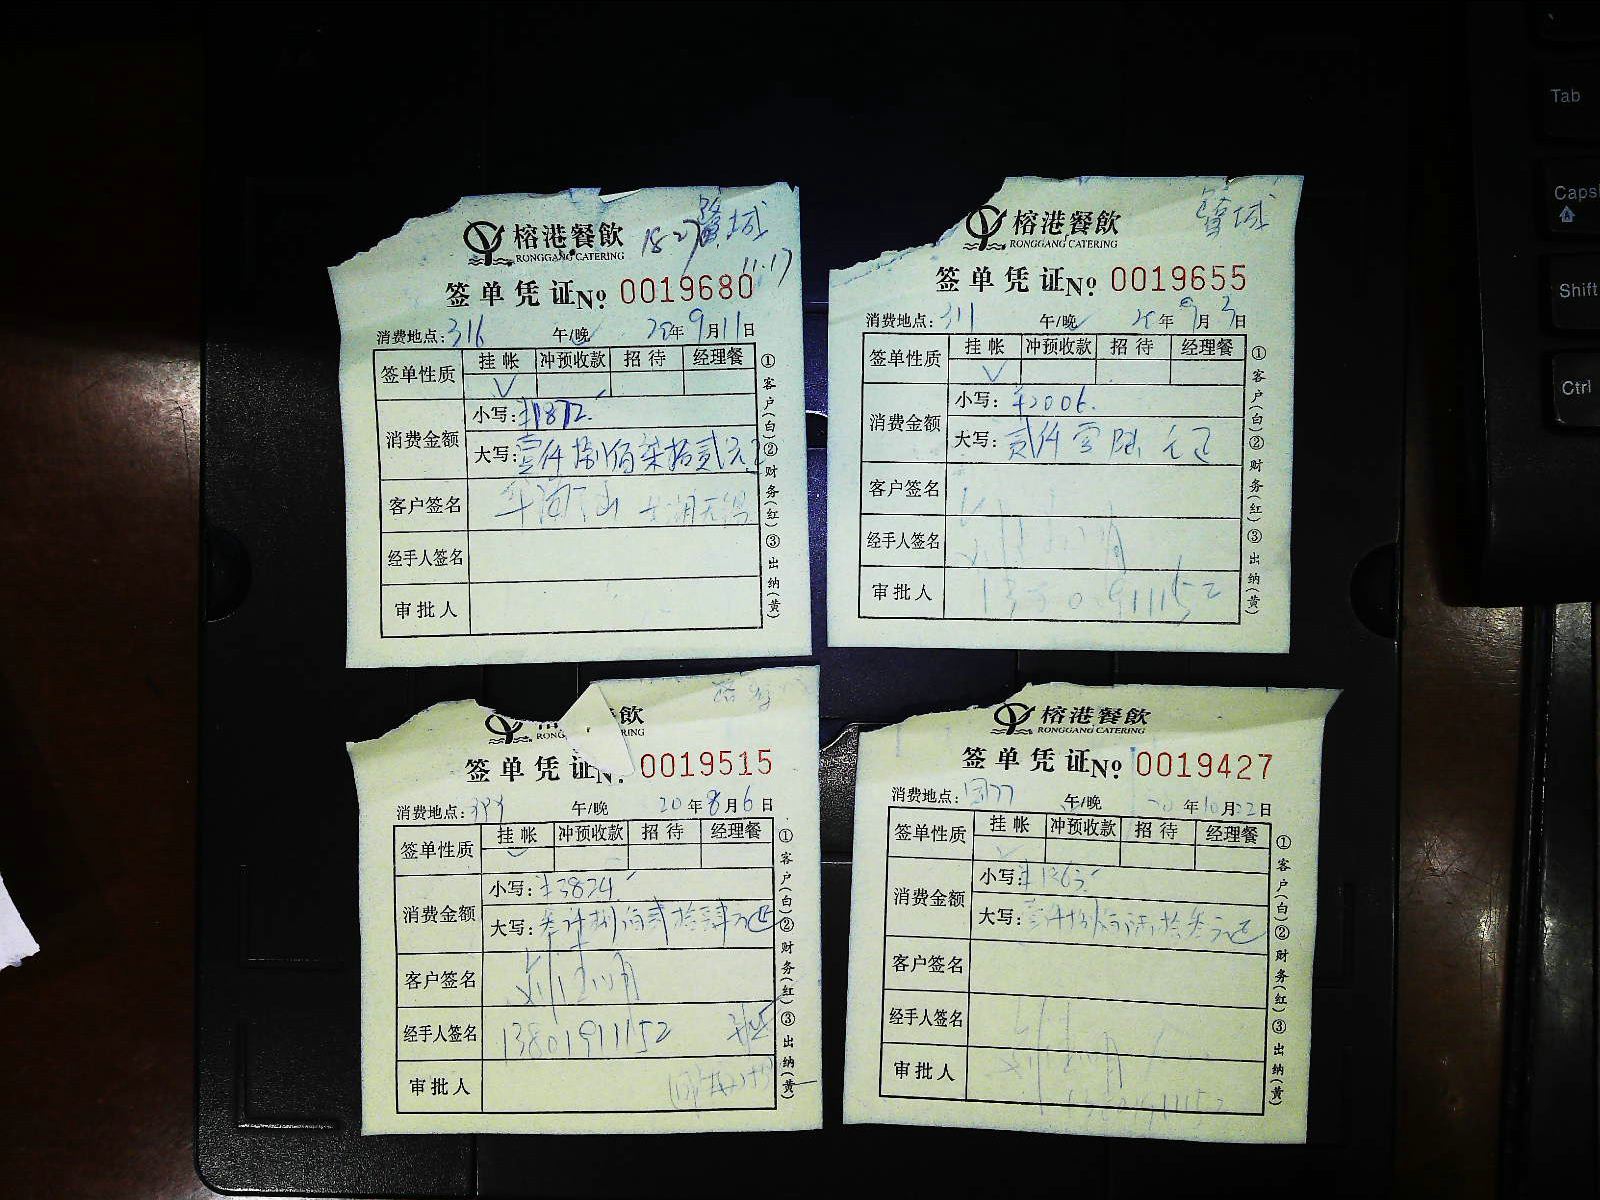 榕港餐飲
RONGGANG CATERING
签单凭证No 0019680
消费地点:316 午/晚 20年9月11日
签单性质 挂帐 冲预收款 招待 经理餐
消费金额
小写:¥1872.
大写:壹仟捌佰柒拾贰元正
客户签名
经手人签名
审批人
①客户(白)②财务(红)③出纳(黄)
榕港餐飲
RONGGANG CATERING
签单凭证No 0019655
消费地点:311 午/晚 20年9月3日
签单性质 挂帐 冲预收款 招待 经理餐
消费金额
小写:¥2006.
大写:贰仟零陆元正
客户签名
经手人签名
审批人
①客户(白)②财务(红)③出纳(黄)
飲
RONG
签单凭证No 0019515
消费地点: 午/晚 20年8月6日
签单性质 挂帐 冲预收款 招待 经理餐
消费金额
小写:¥3824.
大写:叁仟捌佰贰拾肆元正
客户签名
经手人签名 13801911152
审批人
①客户(白)②财务(红)③出纳(黄)
榕港餐飲
RONGGANG CATERING
签单凭证No 0019427
消费地点: 午/晚 20年10月22日
签单性质 挂帐 冲预收款 招待 经理餐
消费金额
小写:
大写:
客户签名
经手人签名
审批人
①客户(白)②财务(红)③出纳(黄)
Tab
Caps
Shift
Ctrl